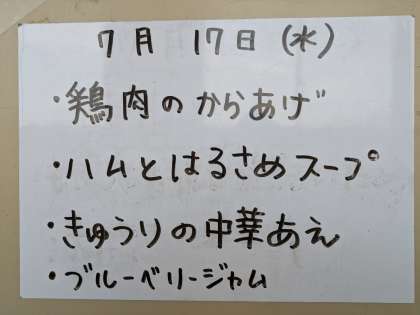 7月 17日 (水)
・鶏肉のからあげ
・ハムとはるさめスープ
・きゅうりの中華あえ
・ブルーベリージャム